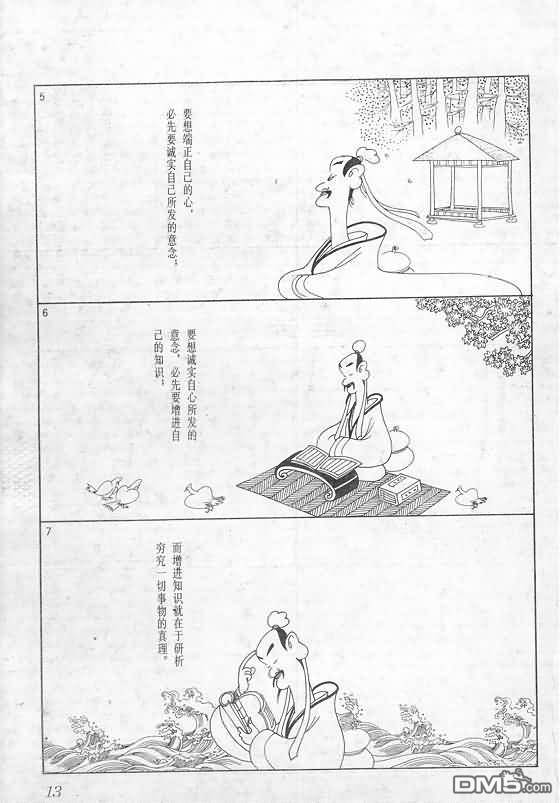 5
要想端正自己的心，
必先要诚实自己所发的意念；
6
要想诚实自心所发的
意念，必先要增进自
己的知识；
7
而增进知识就在于研析
穷究一切事物的真理。
13
DM5.com